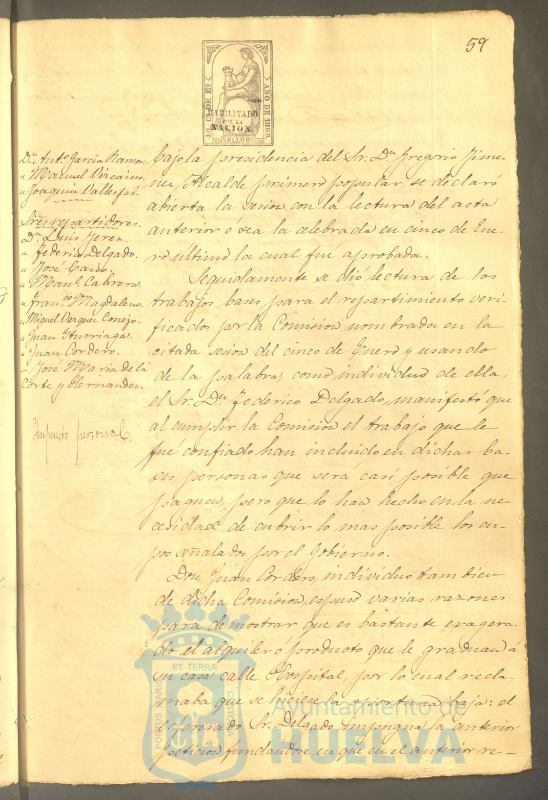 59
10 CS DE Eº
AÑO DE 1869
HABILITADO
POR LA
NACION.
SELLO 9º
Dn. Antº Garcia Ramos
" Manuel Vizcaino
" Joaquin Vallespí
Sres repartidores.
Dn. Luis Perez
" Federico Delgado.
" José Cano.
" Manl. Cabrera.
" Franco. Magdaleno.
" Miguel Vazquez Conejo.
" Juan Yturriaga.
" Juan Cordero.
" José Maria de la
Corte y Hernandez.
Impuesto personal.
bajo la presidencia del Sr. Dn. Gregorio Jime-
nez, Alcalde primero popular, se declaró
abierta la sesion con la lectura del acta
anterior o sea la celebrada en cinco de Ene-
ro último la cual fué aprobada.
Seguidamente se dió lectura de los
trabajos bases para el repartimiento veri-
ficados por la Comision nombrada en la
citada sesion del cinco de Enero y usando
de la palabra, como individuo de ella,
el Sr. Dn. Federico Delgado, manifestó que
al cumplir la Comision el trabajo que le
fué confiado han incluido en dichas ba-
ses personas que será casi posible que
paguen, pero que lo han hecho en la ne-
cesidad de cubrir lo mas posible los cu-
pos señalados por el Gobierno.
Don Juan Cordero, individuo tambien
de dicha Comision, espuso varias razones
para demostrar que es bastante exagera-
do el alquiler ó producto que le graduan á
su casa calle Hospital, por lo cual recla-
maba que se hiciese la oportuna baja: el
espresado Sr. Delgado impugna la anterior
peticion fundandose en que en el anterior re-
PORTUS MARIS
ET TERRAE
CUSTODIA
Ayuntamiento de
HUELVA